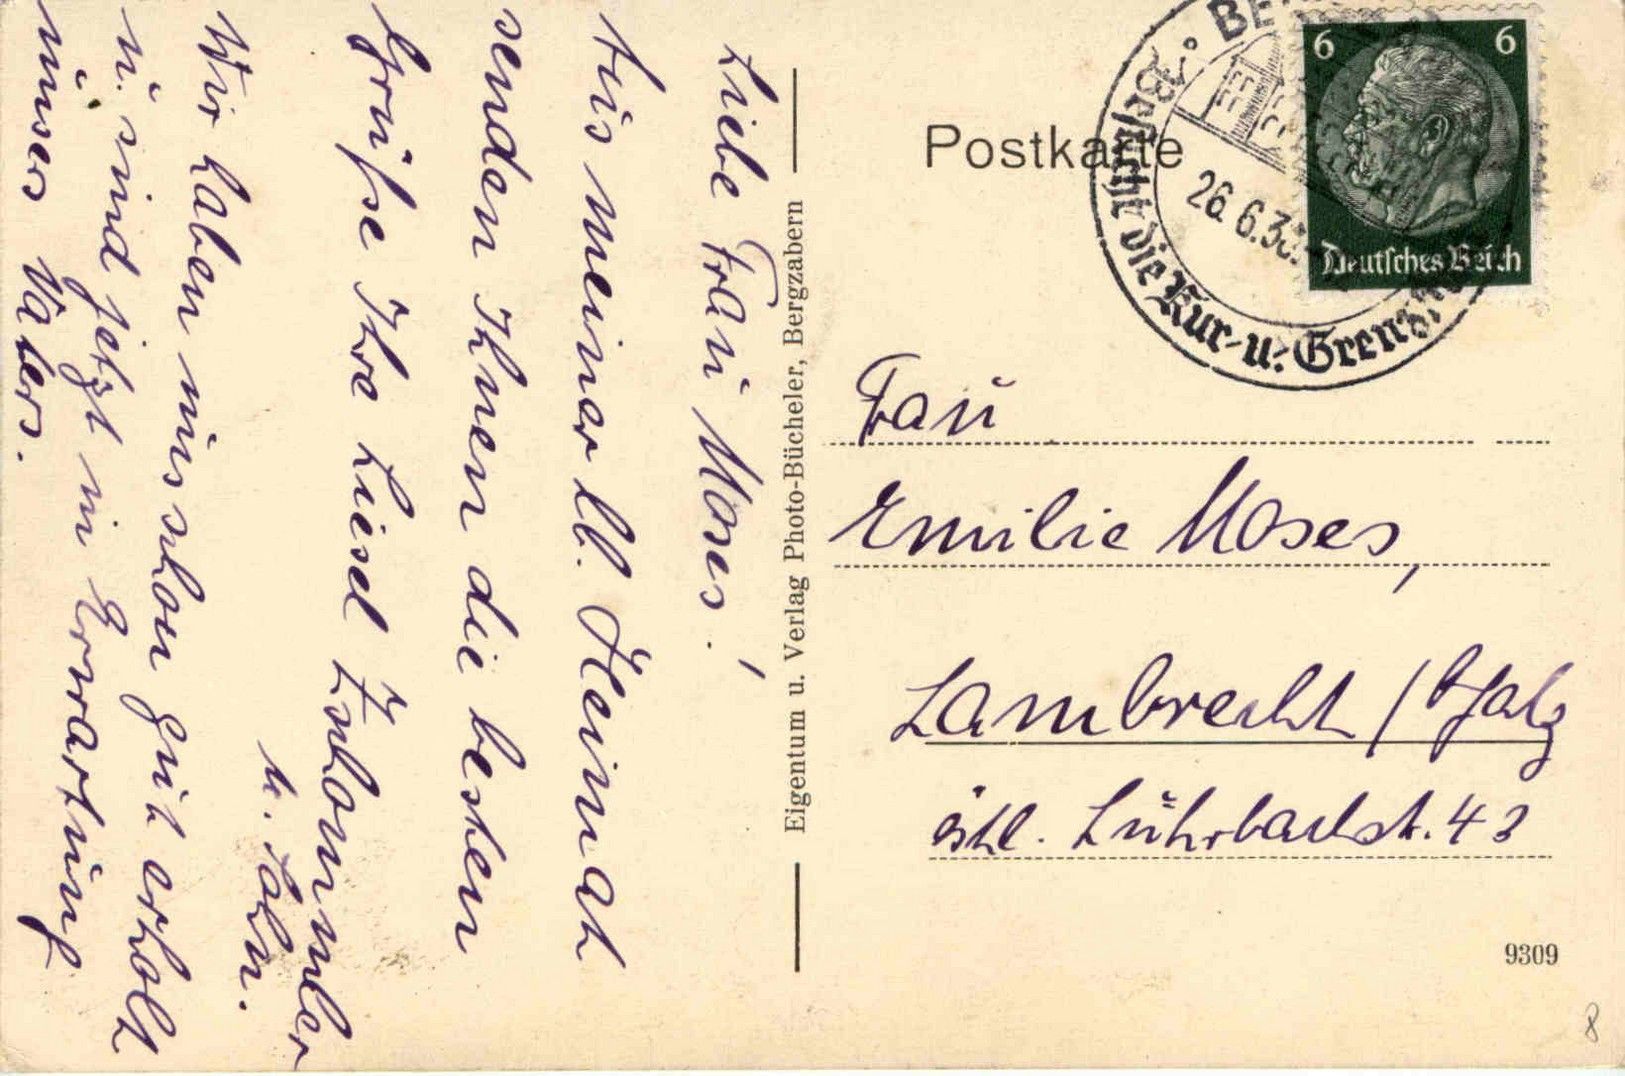 Liebe Frau Moses!
Aus meiner lb. Heimat
senden Ihnen die besten
Grüße Ihre Liesel
u. Sohn.
Wir haben uns schon gut erholt
u. sind jetzt in Erwartung
unseres Vaters.
Eigentum u. Verlag Photo-Bücheler, Bergzabern
Postkarte
Besucht die Kur- u. Grenz
26.6.3
6 6
Deutsches Reich
Frau
Emilie Moses,
Lambrecht / Pfalz
östl. Luhrbachst. 43
9309
8